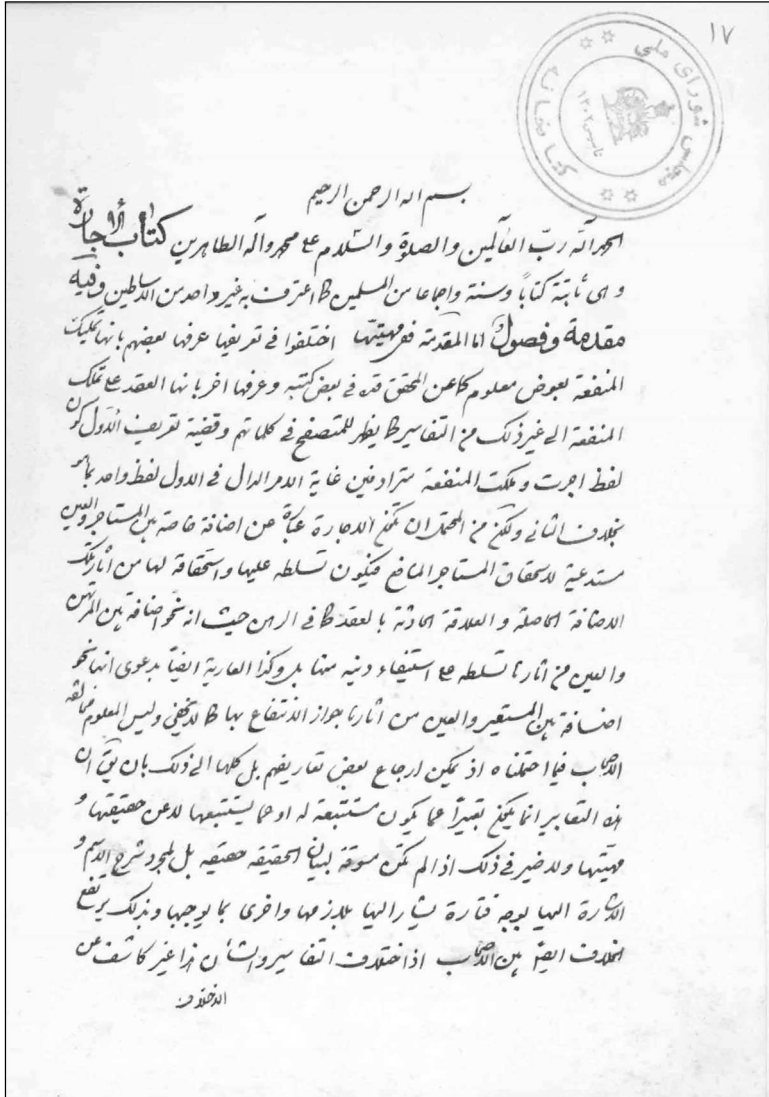 ١٧
مجلس شورای ملی
کتابخانه
تاسیس ١٣٠٢
بسم اله الرحمن الرحیم
الحمد لله ربّ العالمین والصلوة والسّلام علی محمد وآله الطاهرین کتاب الإجارة
وهی ثابتة کتاباً وسنة واجماعا من المسلمین کما اعترف به غیر واحد من الاساطین وفیه
مقدمة وفصول اما المقدمة ففی مهیتها اختلفوا فی تعریفها عرفها بعضهم بانها تملیک
المنفعة بعوض معلوم کما عن المحقق قده فی بعض کتبه وعرفها اخر بانها العقد علی تملک
المنفعة الی غیر ذلک من التفاسیر کما یظهر للمتصفح فی کلماتهم وقضیة تعریف الاول کون
لفظ اجرت وملکت المنفعة مترادفین غایة الامر الدال فی الاول لفظ واحد
بخلاف الثانی ولکن من المحتمل ان تکون الاجارة عبارة عن اضافة خاصة بین المستاجر والعین
مستدعیة لاستحقاق المستاجر المنافع فیکون تسلطه علیها واستحقاقه لها من اثار تلک
الاضافة الحاصلة والعلاقة الحادثة بالعقد کما فی الرهن حیث انه نحو اضافة بین المرتهن
والعین من اثارها تسلطه علی استیفاء دینه منها بل وکذا العاریة ایضاً بدعوی انها نحو
اضافة بین المستعیر والعین من اثارها جواز الانتفاع بها کما لا یخفی ولیس المعلوم مخالفة
الاصحاب فیما احتملناه اذ یمکن ارجاع بعض تعاریفهم بل کلها الی ذلک بان یق ان
هذه التعابیر انما یکون تعبیراً عما یکون مستتبعة له او عما یستتبعها لا عن حقیقتها و
مهیّتها ولا ضیر فی ذلک اذا لم تکن مسوقة لبیان الحقیقه حقیقه بل لمجرد شرح الاسم و
الاشارة الیها بوجه فتارة یشار الیها بلازمها واخری بما یوجبها وبذلک یرتفع
الخلاف ایضاً بین الاصحاب اذ اختلاف التفاسیر والشأن هذا غیر کاشف عن
الاختلاف